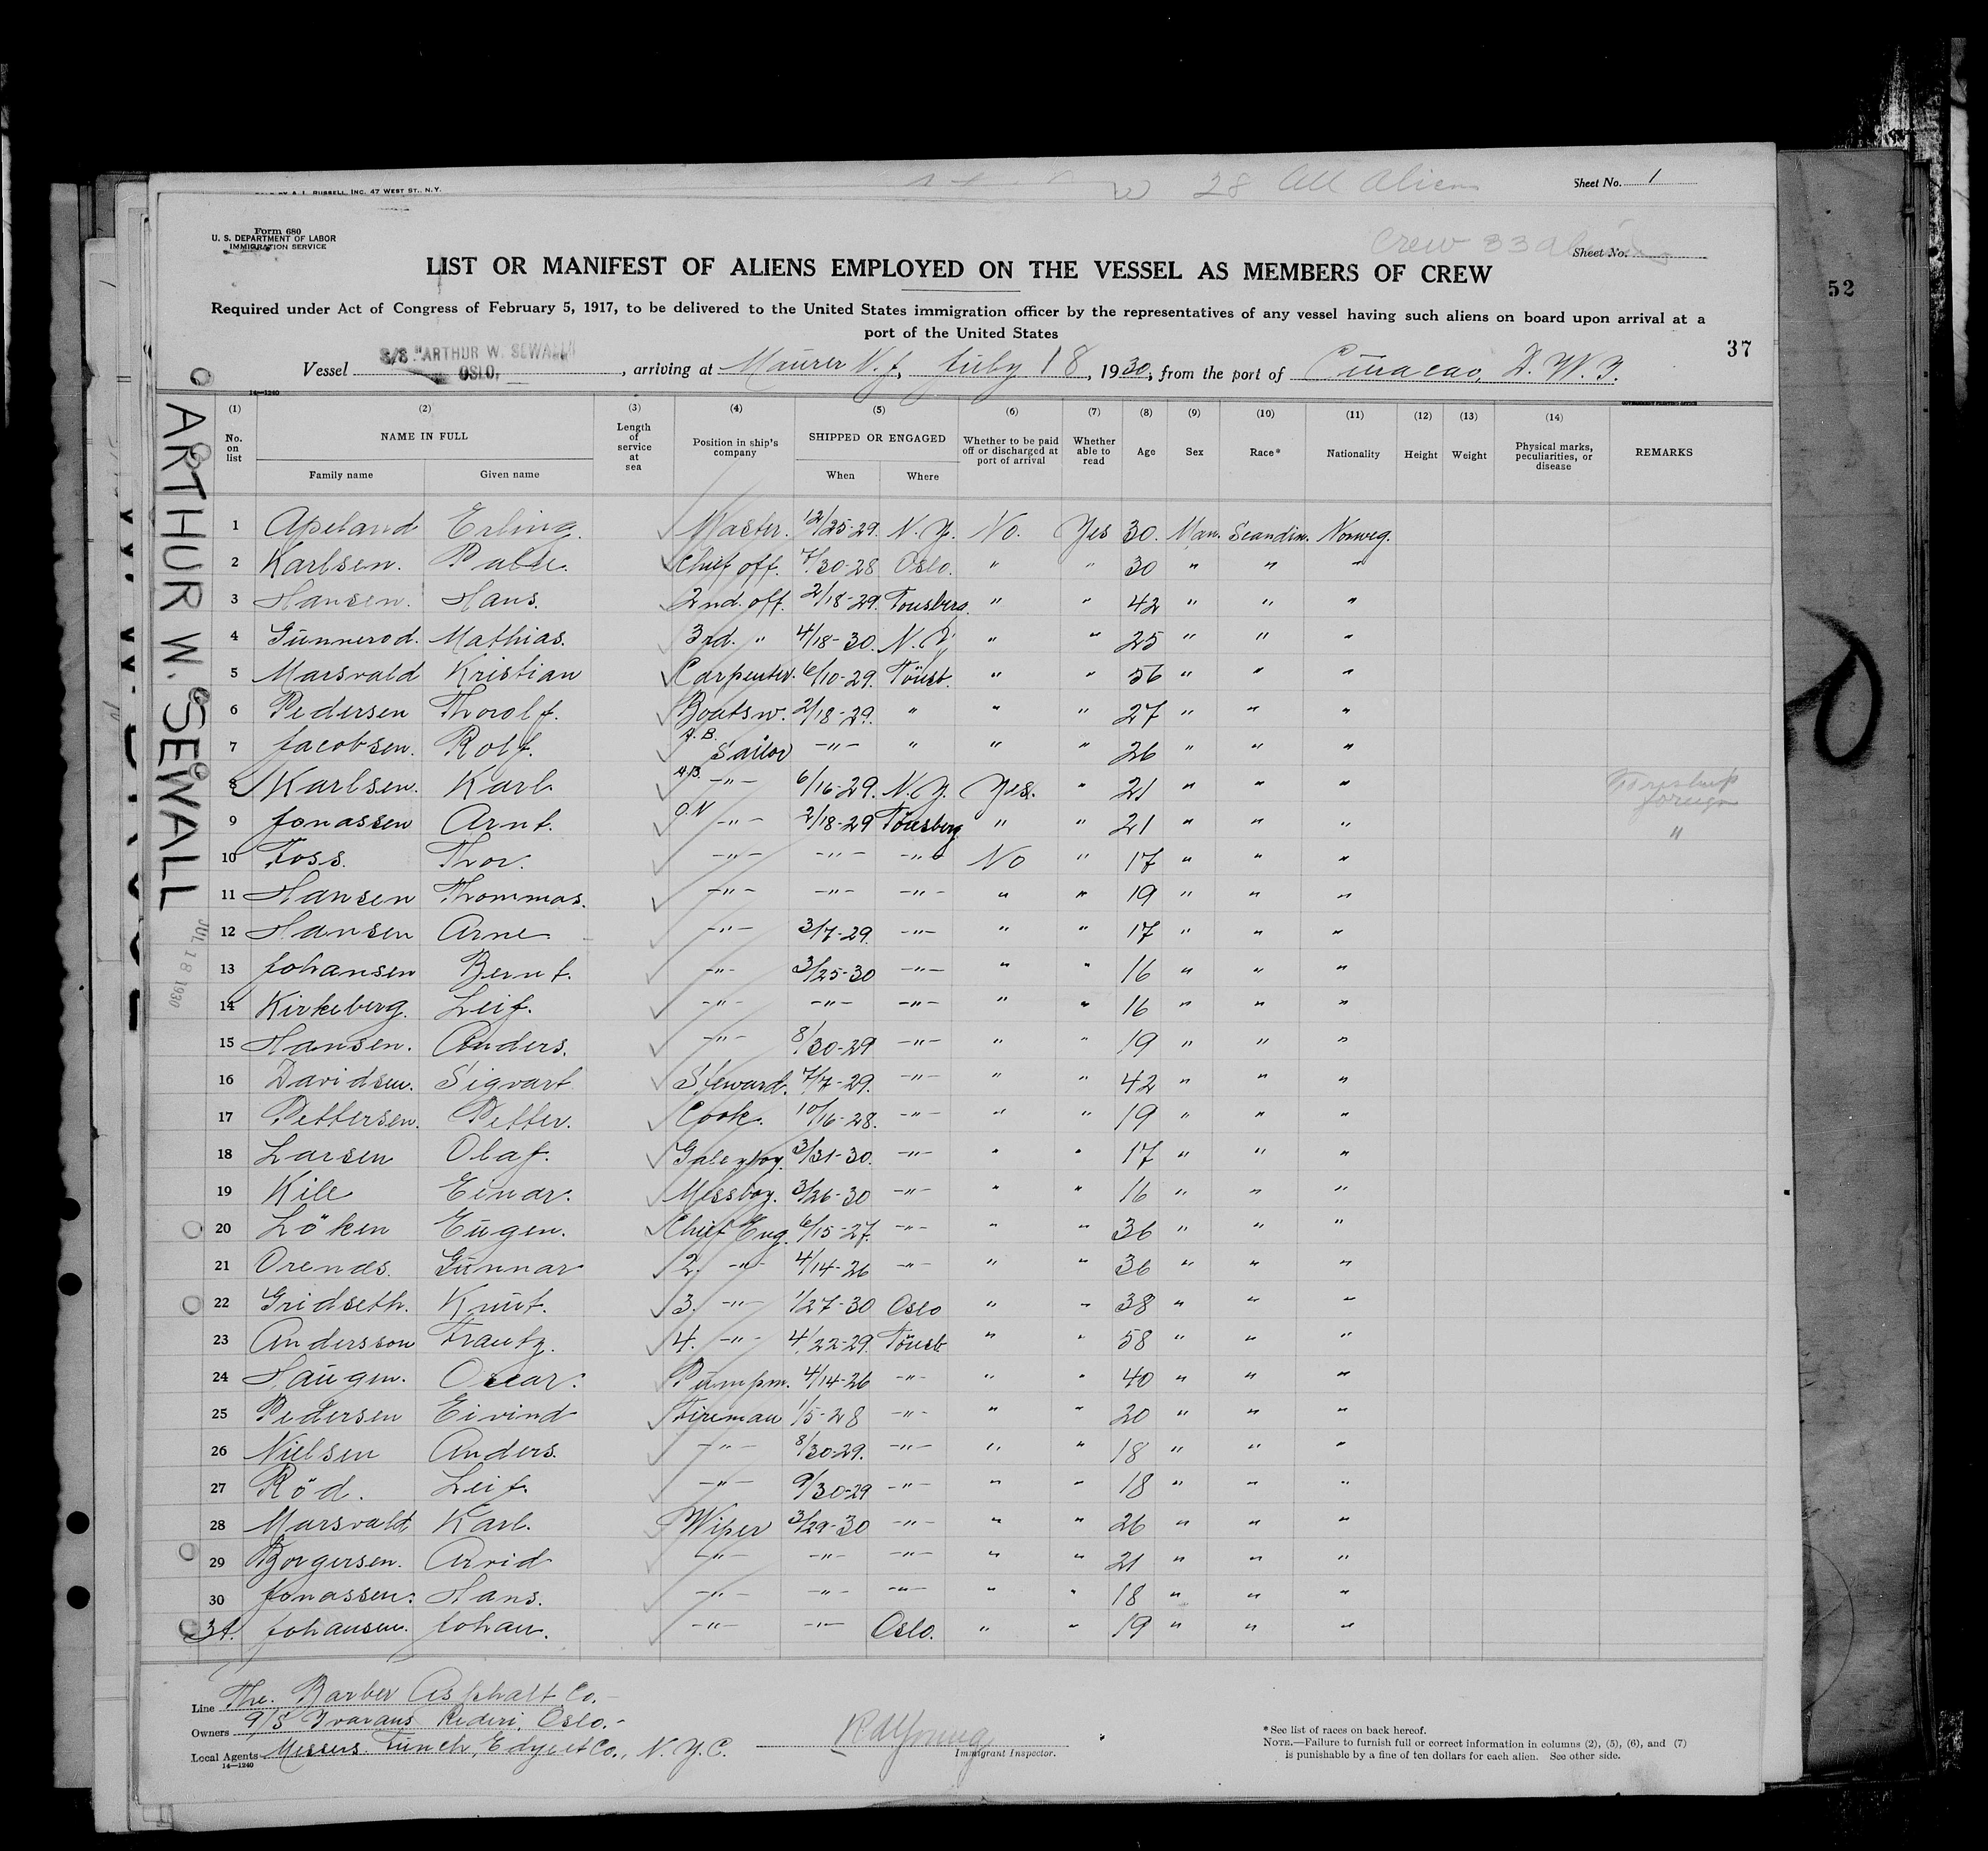 RUSSELL, INC. 47 WEST ST., N.Y.
28 All Aliens
Sheet No. 1
Form 680
U. S. DEPARTMENT OF LABOR
IMMIGRATION SERVICE
Crew 33
Sheet No.
LIST OR MANIFEST OF ALIENS EMPLOYED ON THE VESSEL AS MEMBERS OF CREW
Required under Act of Congress of February 5, 1917, to be delivered to the United States immigration officer by the representatives of any vessel having such aliens on board upon arrival at a
port of the United States
52
37
Vessel S/S "ARTHUR W. SEWALL" OSLO, , arriving at Maurer N.J., July 18, 1930, from the port of Curacao, D. W. I.
14—1240
GOVERNMENT PRINTING OFFICE
ARTHUR W. SEWALL
JUL 18 1930
(1) (2) (3) (4) (5) (6) (7) (8) (9) (10) (11) (12) (13) (14)
No. on list NAME IN FULL Length of service at sea Position in ship's company SHIPPED OR ENGAGED Whether to be paid off or discharged at port of arrival Whether able to read Age Sex Race* Nationality Height Weight Physical marks, peculiarities, or disease REMARKS
Family name Given name When Where
1 Apeland Erling. Master. 12/25-29. N.Y. No. Yes 30. Man. Scandin. Norweg.
2 Karlsen. Palle. Chief off. 7/30-28 Oslo. " " 30 " " "
3 Hansen. Hans. 2nd. off. 2/18-29. Tonsberg. " " 42 " " "
4 Gunnerod. Mathias. 3rd. " 4/18-30. N.Y. " " 25 " " "
5 Marsvald Kristian Carpenter. 6/10-29. Tönsb. " " 56 " " "
6 Pedersen Thorolf. Boatsw. 2/18-29. " " " 27 " " "
7 Jacobsen. Rolf. A.B. Sailor -"- " " " 26 " " "
8 Karlsen. Karl. A.B. -"- 6/16-29. N.Y. Yes. " 21 " " " foreign
9 Jonassen Arnt. -"- 2/18-29 Tönsberg " " 21 " " " "
10 Foss. Thor. -"- -"- -"- No " 17 " " "
11 Hansen Thommas. -"- -"- -"- " " 19 " " "
12 Hansen Arne -"- 3/7-29. -"- " " 17 " " "
13 Johansen Bernt. -"- 3/25-30 -"- " " 16 " " "
14 Kirkeberg. Leif. -"- -"- -"- " " 16 " " "
15 Hansen. Anders. -"- 8/30-29 -"- " " 19 " " "
16 Davidsen. Sigvart Steward. 7/7-29. -"- " " 42 " " "
17 Pettersen. Petter. Cook. 10/16-28. -"- " " 19 " " "
18 Larsen Olaf. Galeyboy. 3/31-30. -"- " " 17 " " "
19 Kile Einar. Messboy. 3/26-30 -"- " " 16 " " "
20 Löken Eugen. Chief Eng. 6/15-27. -"- " " 36 " " "
21 Orenes. Gunnar 2. -"- 4/14-26 -"- " " 36 " " "
22 Gridseth. Knut. 3. -"- 1/27-30 Oslo " " 38 " " "
23 Andersson Frantz. 4. -"- 4/22-29. Tönsb " " 58 " " "
24 Haugen. Oscar. Pumpm. 4/14-26 -"- " " 40 " " "
25 Pedersen Eivind Fireman 1/5-28 -"- " " 20 " " "
26 Nielsen Anders. -"- 8/30-29. -"- " " 18 " " "
27 Röd. Leif. -"- 9/30-29 -"- " " 18 " " "
28 Marsvald Karl. Wiper 3/29-30 -"- " " 26 " " "
29 Borgersen. Arvid -"- -"- -"- " " 21 " " "
30 Jonassen. Hans. -"- -"- -"- " " 18 " " "
31. Johansen. Johan. -"- -"- Oslo. " " 19 " " "
Line The. Barber Asphalt Co.-
Owners A/S Ivarans Rederi, Oslo.-
Local Agents Messrs. Funch, Edye et Co., N.Y.C.
14—1240
RdYoung
Immigrant Inspector.
*See list of races on back hereof.
NOTE.—Failure to furnish full or correct information in columns (2), (5), (6), and (7)
is punishable by a fine of ten dollars for each alien. See other side.